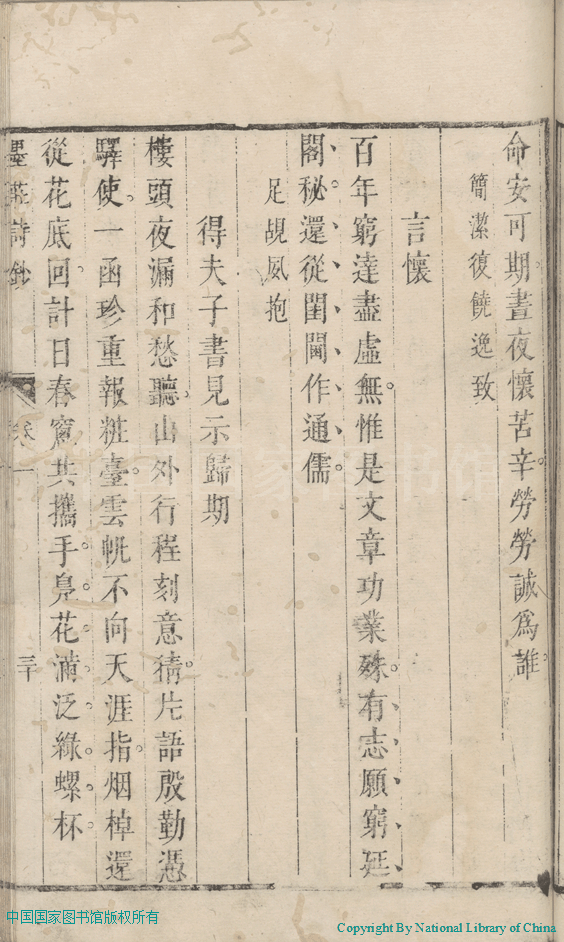 命安可期晝夜懷苦辛勞勞誠爲誰
簡潔復饒逸致
言懷
百年窮達盡虛無惟是文章功業殊有志願窮廷
閣秘還從閨閫作通儒
足覘夙抱
得夫子書見示歸期
樓頭夜漏和愁聽山外行程刻意猜片語殷勤憑
驛使一函珍重報粧臺雲帆不向天涯指烟棹還
從花底回計日春窻共攜手鳬花滿泛綠螺杯
墨莊詩鈔 卷一 三十
中国国家图书馆版权所有
Copyright By National Library of China